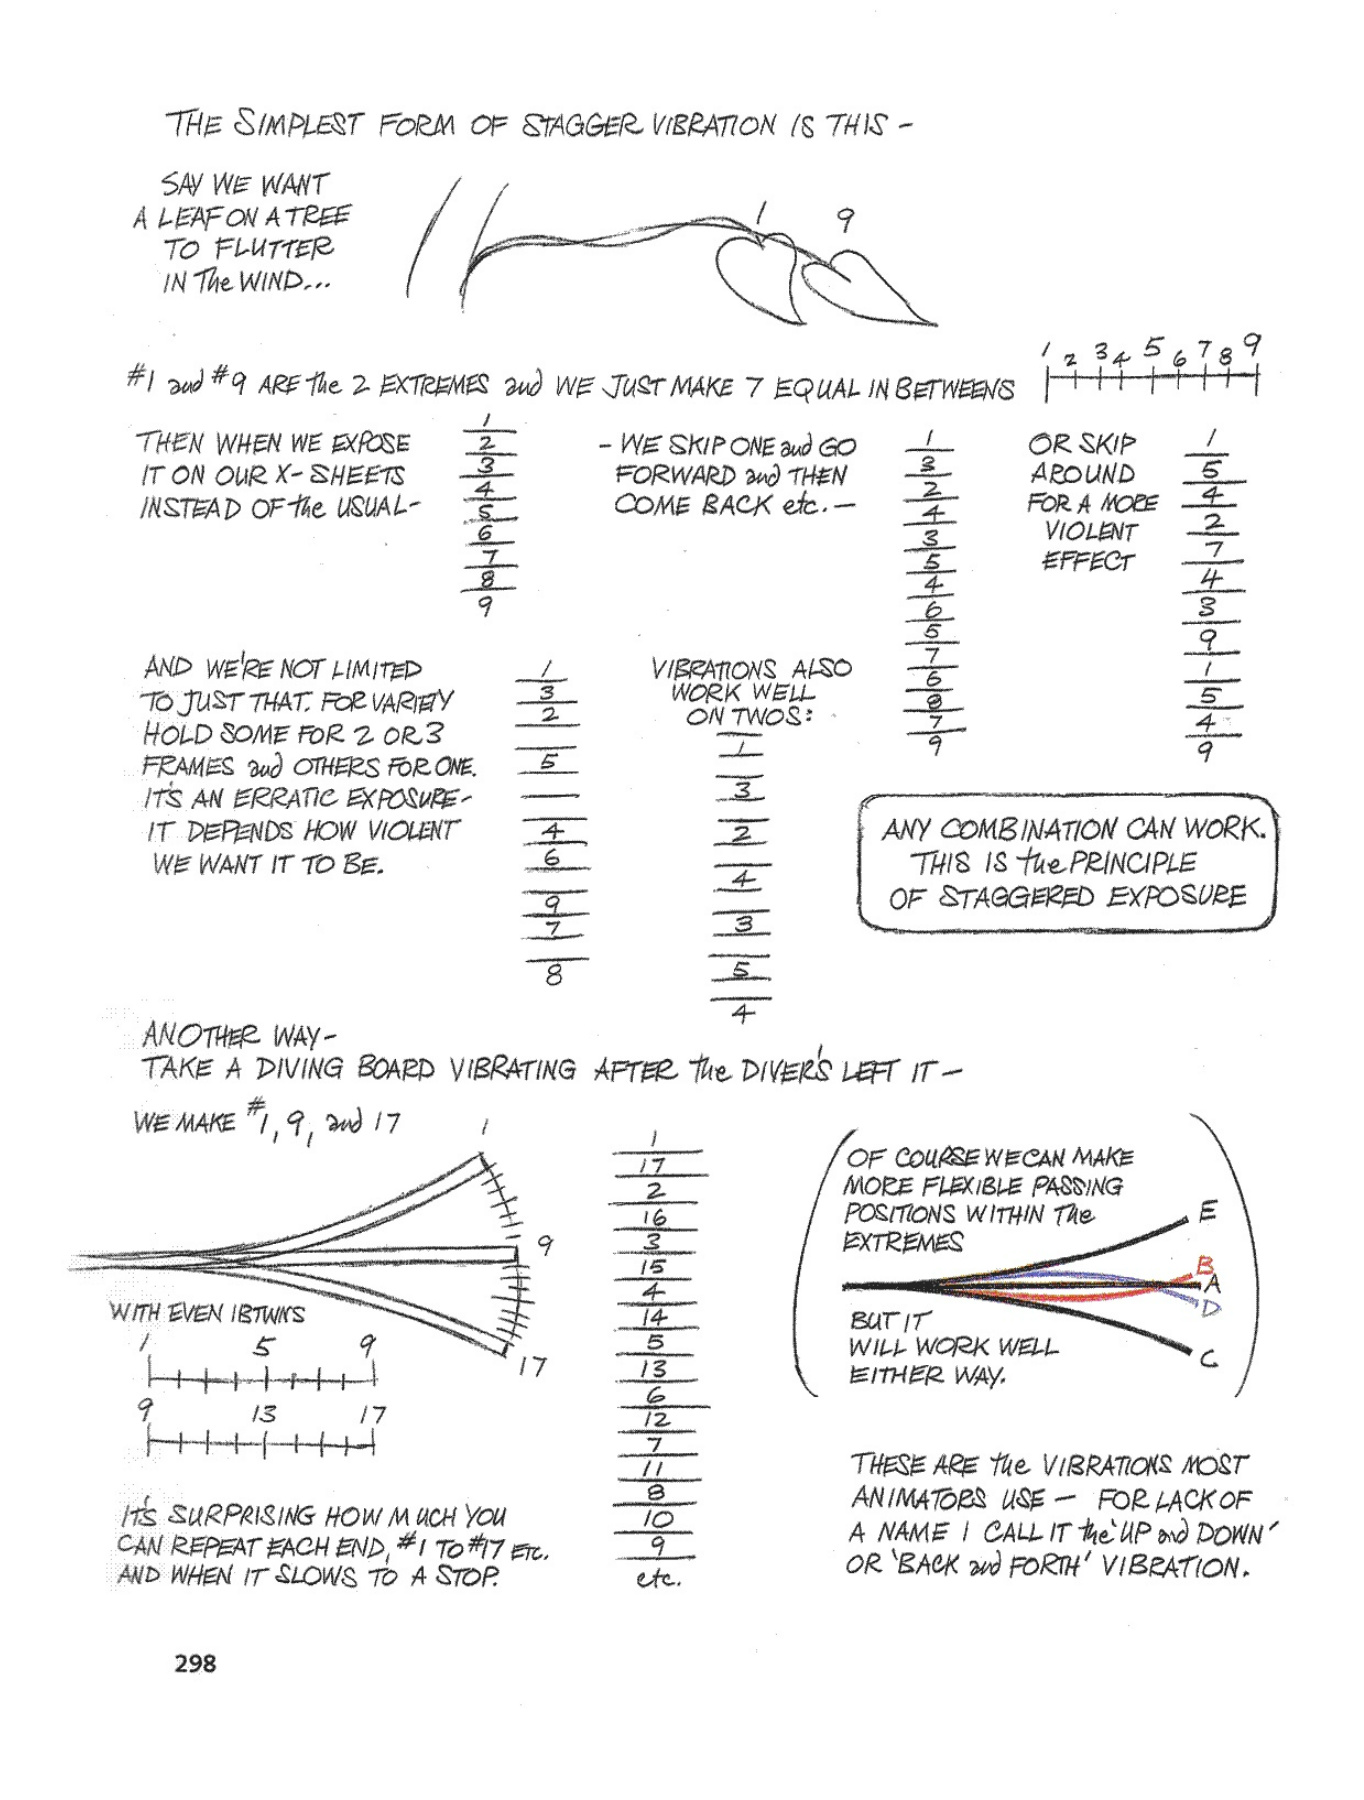 THE SIMPLEST FORM OF STAGGER VIBRATION IS THIS –
SAY WE WANT
A LEAF ON A TREE
TO FLUTTER
IN The WIND...
1
9
#1 and #9 ARE the 2 EXTREMES and WE JUST MAKE 7 EQUAL INBETWEENS
1 2 3 4 5 6 7 8 9
THEN WHEN WE EXPOSE
IT ON OUR X-SHEETS
INSTEAD OF the USUAL-
1
2
3
4
5
6
7
8
9
- WE SKIP ONE and GO
FORWARD and THEN
COME BACK etc. —
1
3
2
4
3
5
4
6
5
7
6
8
7
9
OR SKIP
AROUND
FOR A MORE
VIOLENT
EFFECT
1
5
4
2
7
4
3
9
1
5
4
9
AND WE'RE NOT LIMITED
TO JUST THAT. FOR VARIETY
HOLD SOME FOR 2 OR 3
FRAMES and OTHERS FOR ONE.
IT'S AN ERRATIC EXPOSURE-
IT DEPENDS HOW VIOLENT
WE WANT IT TO BE.
1
3
2
5
4
6
9
7
8
VIBRATIONS ALSO
WORK WELL
ON TWOS:
1
3
2
4
3
5
4
ANY COMBINATION CAN WORK.
THIS IS the PRINCIPLE
OF STAGGERED EXPOSURE
ANOTHER WAY-
TAKE A DIVING BOARD VIBRATING AFTER the DIVER'S LEFT IT —
WE MAKE #1, 9, and 17
1
9
17
WITH EVEN IBTWNS
1 5 9
9 13 17
IT'S SURPRISING HOW MUCH YOU
CAN REPEAT EACH END, #1 TO #17 ETC.
AND WHEN IT SLOWS TO A STOP.
1
17
2
16
3
15
4
14
5
13
6
12
7
11
8
10
9
etc.
OF COURSE WE CAN MAKE
MORE FLEXIBLE PASSING
POSITIONS WITHIN The
EXTREMES
E
B
A
D
C
BUT IT
WILL WORK WELL
EITHER WAY.
THESE ARE the VIBRATIONS MOST
ANIMATORS USE — FOR LACK OF
A NAME I CALL IT the 'UP and DOWN'
OR 'BACK and FORTH' VIBRATION.
298